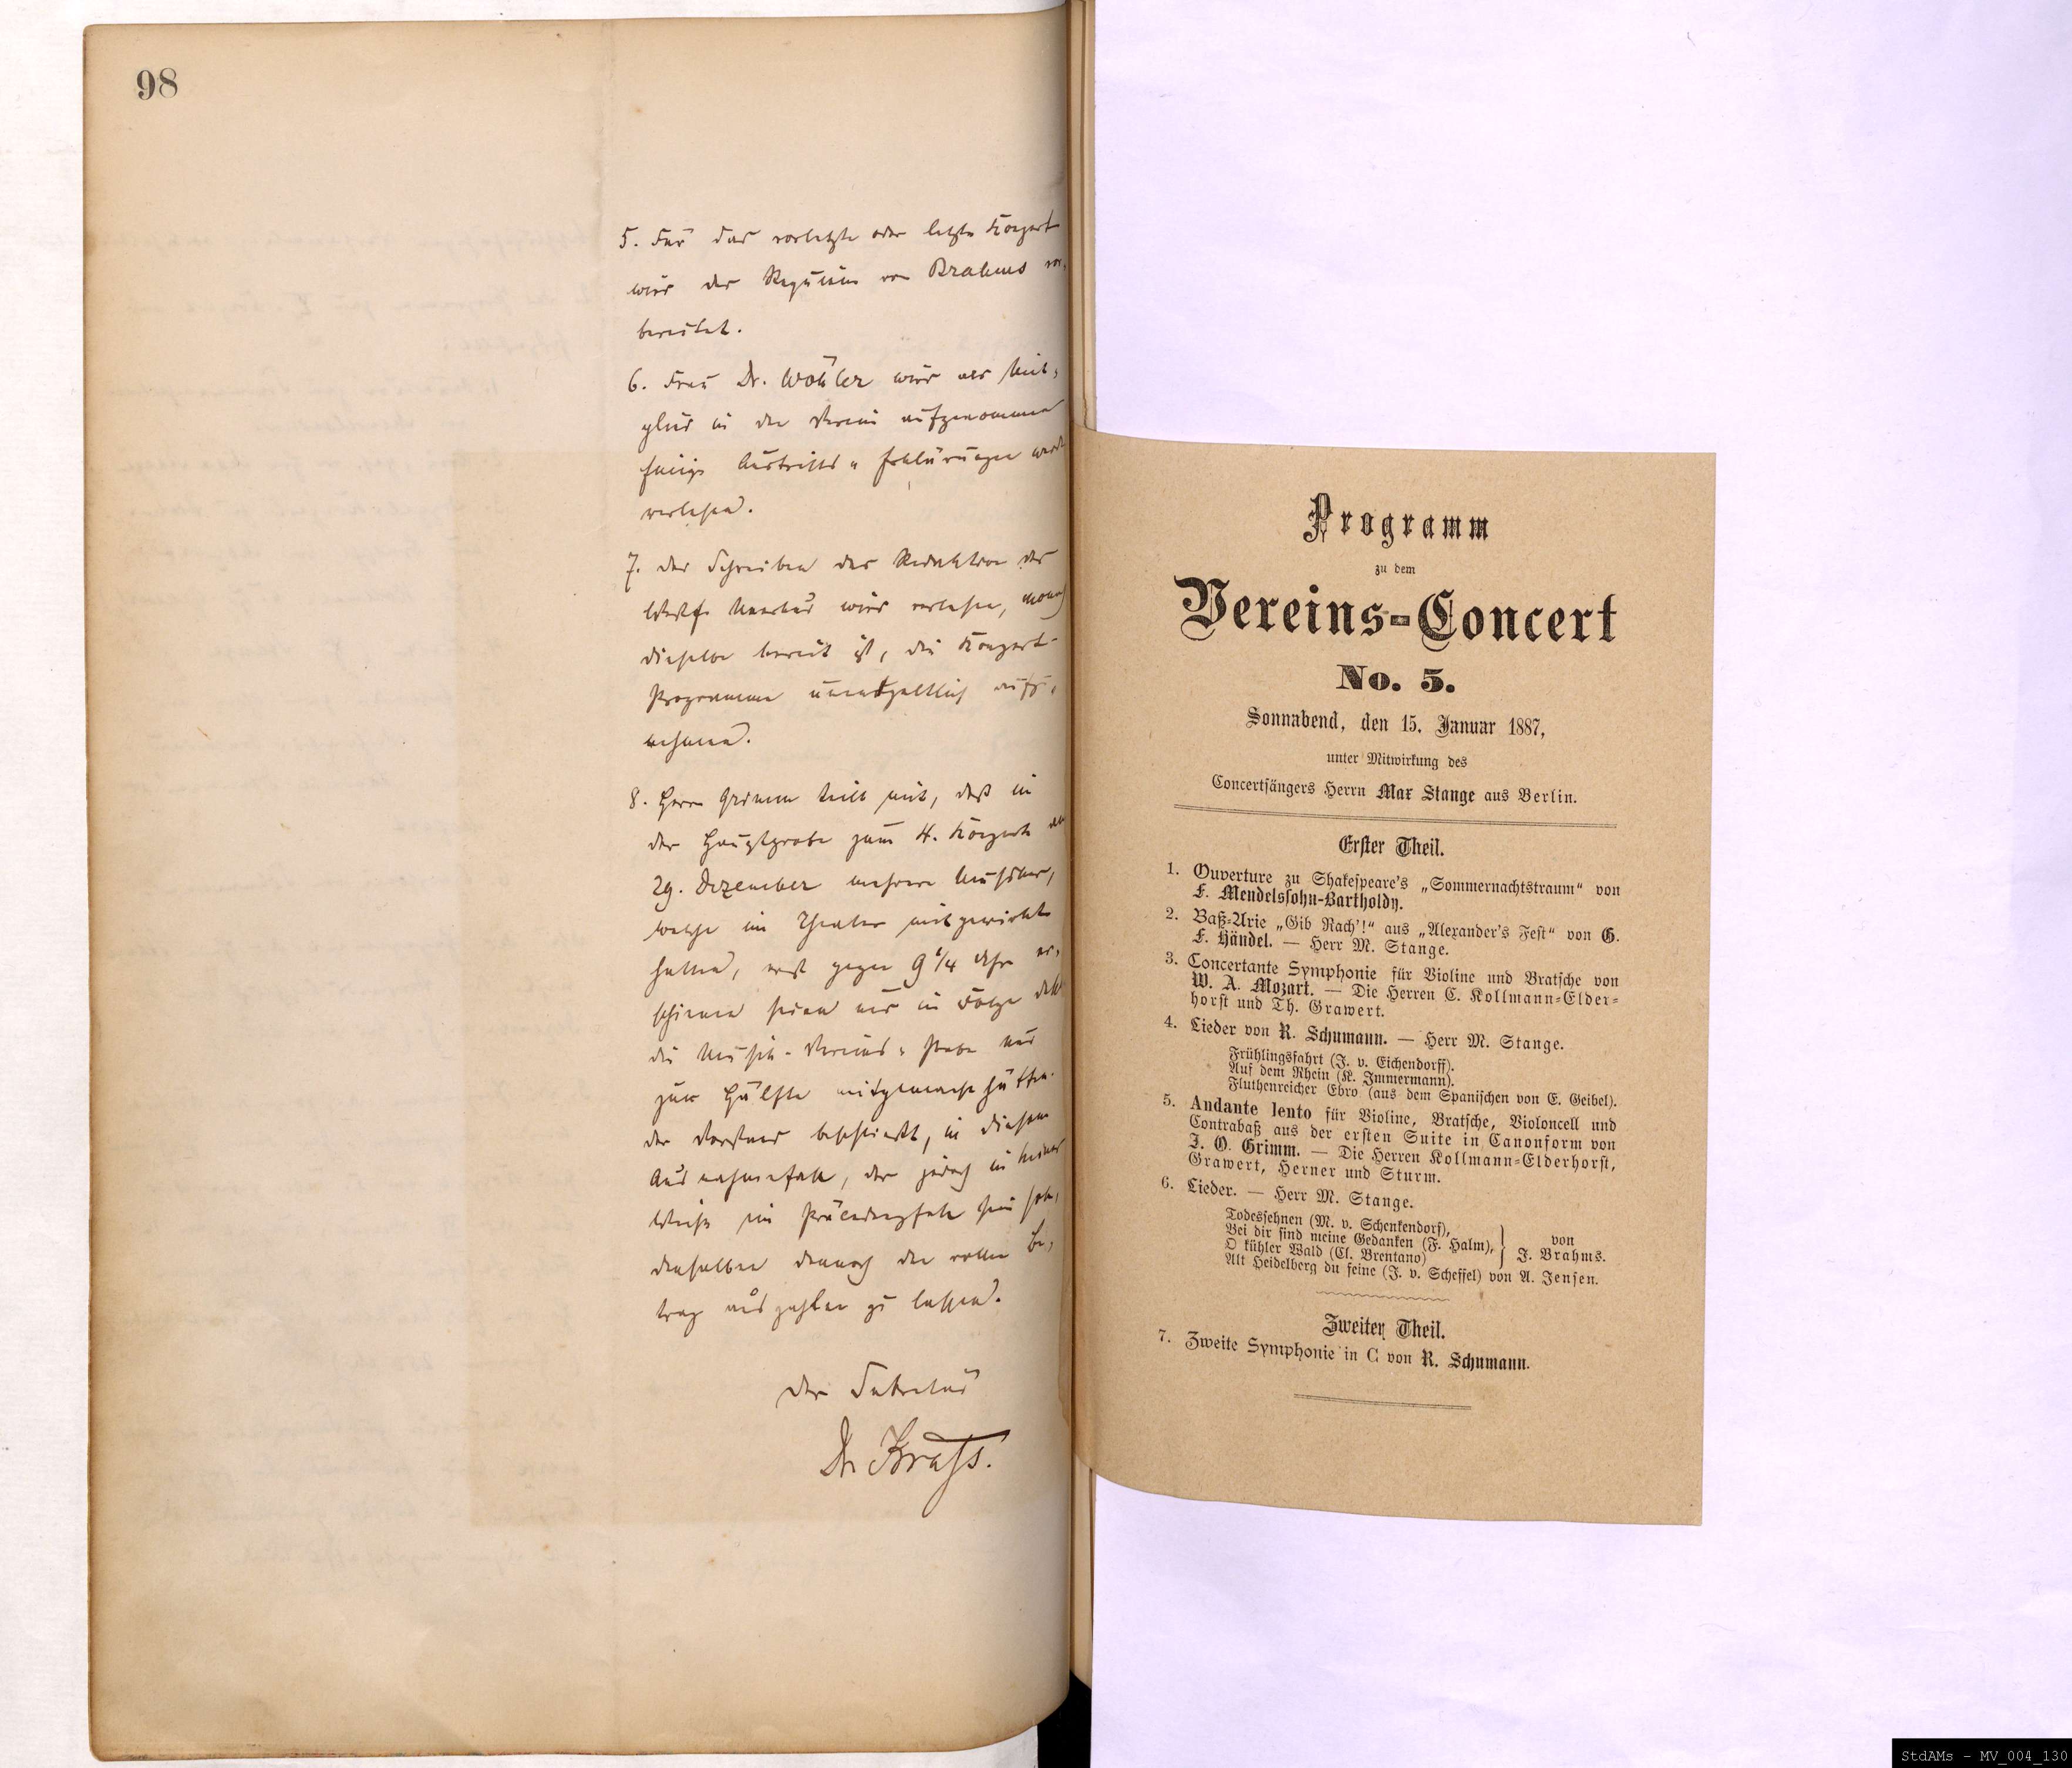 98
5. Für das vorletzte oder letzte Konzert
wird das Requiem von Brahms vor-
bereitet.
6. Frau Dr. Wöhler wird als Mit-
glied in den Verein aufgenommen
Einige Austritts-Erklärungen werden
verlesen.
7. Das Schreiben der Redaktion des
Westf. Merkur wird verlesen, wonach
dieselbe bereit ist, die Konzert-
Programme unentgeltlich aufzu-
nehmen.
8. Herr Grimm teilt mit, daß in
der Hauptprobe zum 4. Konzerte am
29. Dezember mehrere Musiker,
welche im Theater mitgewirkt
hatten, erst gegen 9 1/4 Uhr er-
schienen seien und in Folge
die Musik-Vereins-Probe nur
zur Hälfte mitgemacht hätten.
Der Vorstand beschließt, in diesem
Ausnahmefall, der jedoch in keiner
Weise ein Präcedenzfall sein soll,
denselben dennoch den vollen Be-
trag auszahlen zu lassen.
Der Sekretär
Dr. Krass.
Programm
zu dem
Vereins-Concert
No. 5.
Sonnabend, den 15. Januar 1887,
unter Mitwirkung des
Concertsängers Herrn Max Stange aus Berlin.
Erster Theil.
1. Ouverture zu Shakespeare's „Sommernachtstraum“ von
F. Mendelssohn-Bartholdy.
2. Baß-Arie „Gib Rach'!“ aus „Alexander's Fest“ von G.
F. Händel. — Herr M. Stange.
3. Concertante Symphonie für Violine und Bratsche von
W. A. Mozart. — Die Herren C. Kollmann-Elder-
horst und Th. Grawert.
4. Lieder von R. Schumann. — Herr M. Stange.
Frühlingsfahrt (J. v. Eichendorff).
Auf dem Rhein (K. Immermann).
Fluthenreicher Ebro (aus dem Spanischen von E. Geibel).
5. Andante lento für Violine, Bratsche, Violoncell und
Contrabaß aus der ersten Suite in Canonform von
J. O. Grimm. — Die Herren Kollmann-Elderhorst,
Grawert, Herner und Sturm.
6. Lieder. — Herr M. Stange.
Todessehnen (M. v. Schenkendorf),
Bei dir sind meine Gedanken (F. Halm),
O kühler Wald (Cl. Brentano)
von
J. Brahms.
Alt Heidelberg du feine (J. v. Scheffel) von A. Jensen.
Zweiter Theil.
7. Zweite Symphonie in C von R. Schumann.
StdAMs - MV_004_130